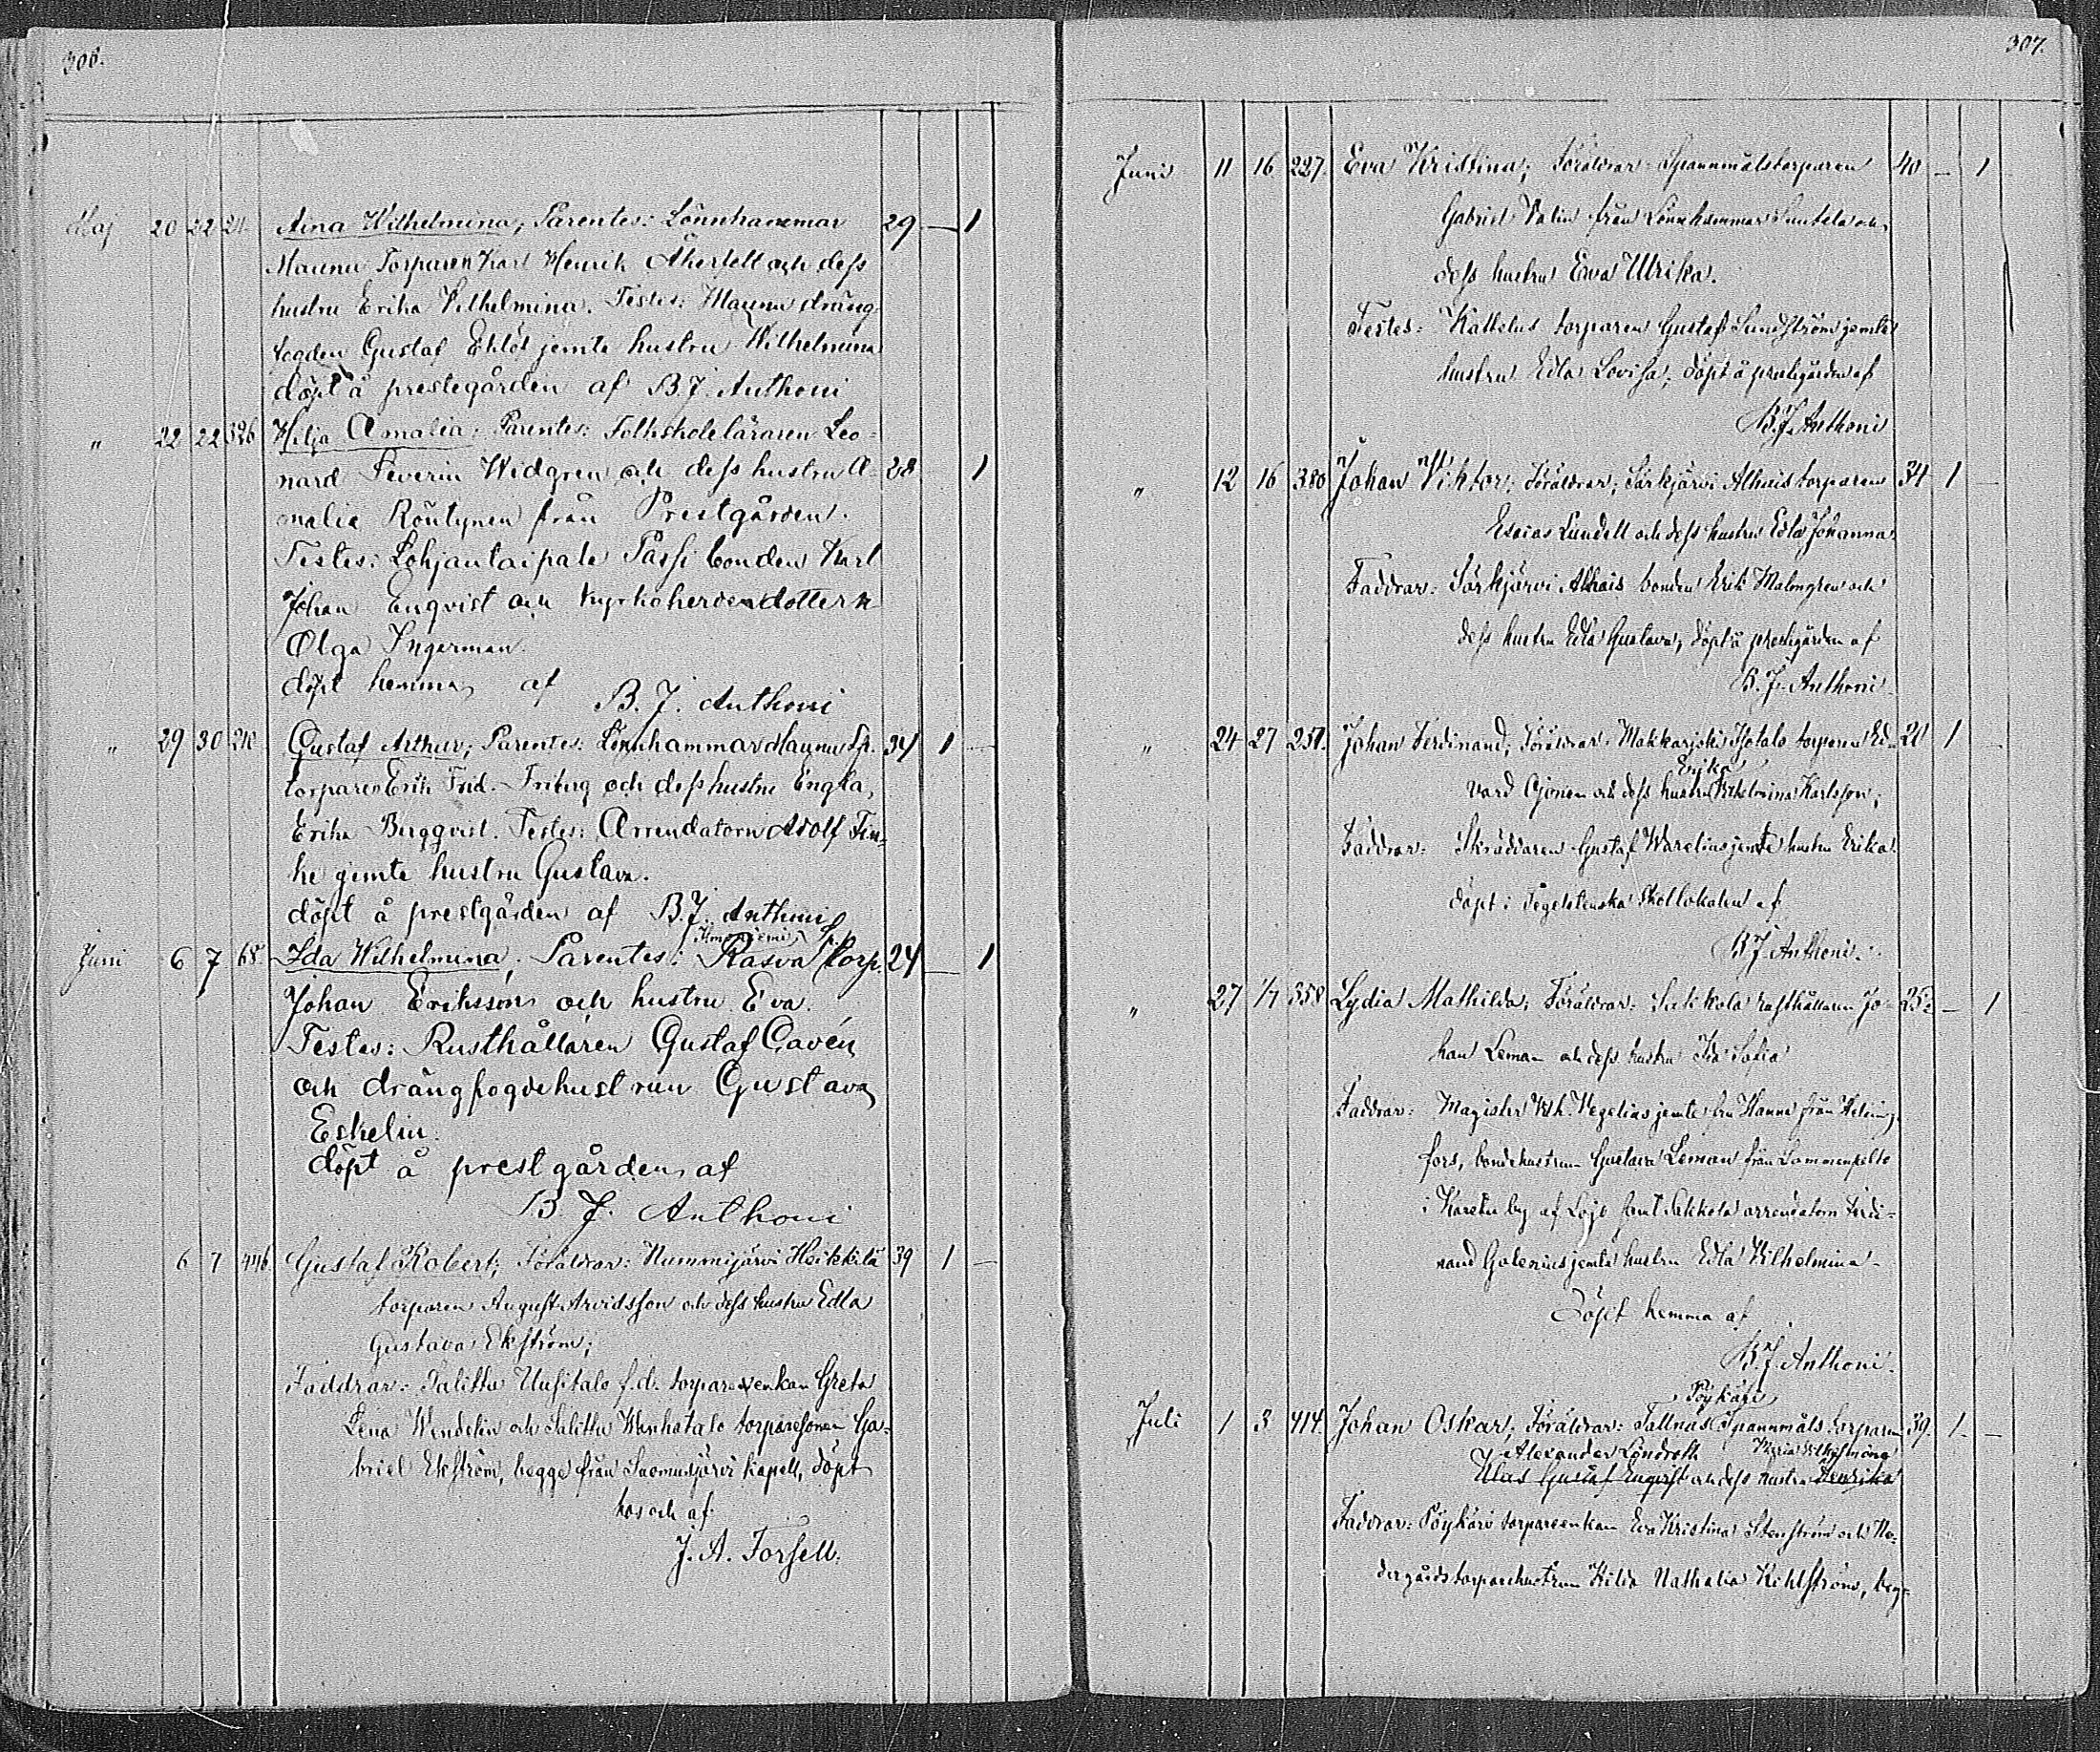 306.
Maj 20 22 21 Aina Wilhelmina; Parentes: Lönnhammar 29 — 1
Maunu Torparen Karl Henrik Åkerfelt och dess
hustru Erika Vilhelmina. Testes: Maunu dräng-
fogden Gustaf Eklöf jemte hustru Wilhelmina
döpt å prestegården af B. J. Anthoni
" 22 22 326 Hilja Amalia; Parentes: Folkskoleläraren Leo-
nard Severin Widgren och dess hustru A- 28 1
malia Röntynen från Prestgården.
Testes: Lohjantaipale Passi bonden Karl
Johan Enqvist och kyrkoherdendottern
Olga Ingerman.
döpt hemma af B. J. Anthoni
" 29 30 210 Gustaf Arthur; Parentes: Lönnhammar Maunu Sp. 34 1 —
torparen Erik Frid. Friberg och dess hustru Engla,
Erika Bergqvist. Testes: Arrendatorn Adolf Fin-
he jemte hustru Gustava.
döpt å prestgården af B. J. Anthoni
Juni 6 7 68 Ida Wilhelmina; Parentes: Rasva Sp. torp. 24 — 1
Johan Eriksson och hustru Eva.
Testes: Rusthållaren Gustaf Cavén
och drängfogdehustrun Gustava
Eskelin.
döpt å prestgården af
B. J. Anthoni
6 7 446 Gustaf Robert; Föräldrar: Nummijärvi Heikkilä 39 1 —
torparen August Arvidsson och dess hustru Edla
Gustava Ekström;
Faddrar: Salittu Uusitalo f.d. torpareenkan Greta
Lena Wendelin och Salittu Wanhatalo torparesonen Ga-
briel Ekström, begge från Suomusjärvi kapell, döpt
hos och af
J. A. Forsell.
307.
Juni 11 16 227. Eva Kristina; Föräldrar: Spannmålstorparen 40 — 1
Gabriel Valin från Lönnhammar Suutela och
dess hustru Eva Ulrika.
Testes: Kattelus torparen Gustaf Sundström jemte
hustru Edla Lovisa; döpt å prestgården af
B. J. Anthoni
" 12 16 380 Johan Viktor; Föräldrar; Särkjärvi Alhais torparen 34 1 —
Esaias Lundell och dess hustru Edla Johanna
Faddrar: Särkjärvi Alhais bonden Erik Malmgren och
dess hustru Edla Gustava; döpt å prestgården af
B. J. Anthoni
" 24 27 251. Johan Ferdinand; Föräldrar: Makkarjoki Isotalo torparen Ed- 20 1 —
Erika
vard Ojonen och dess hustru Wilhelmina Karlsson;
Faddrar: Skräddaren Gustaf Warelius jemte hustru Erika.
döpt i skollokalen af
B. J. Anthoni.
" 27 1/7 358 Lydia Mathilda; Föräldrar: Sakkola rusthållaren Jo- 25 — 1
han Leman och dess hustru Ida Sofia
Faddrar: Magister Wilh. Vegelius jemte fru Hanna från Helsing-
fors, bondehustrun Gustava Leman från Lammenpelto
i Karstu by af Lojo samt Sakkola arrendatorn Ferdi-
nand Galenius jemte hustru Edla Wilhelmina.
Döpt hemma af
B. J. Anthoni.
Pöykäri
Juli 1 3 414. Johan Oskar; Föräldrar: Tallnäs Spannmåls torparen 39. 1. —
Alexander Lindroth Maria Wilhelmina
Klas Gustaf Engvist och dess hustru Henrika
Faddrar: Pöykäri torpareenkan Eva Kristina Stenström och Ne-
dergårds torparehustrun Hilda Nathalia Kihlström, beg-